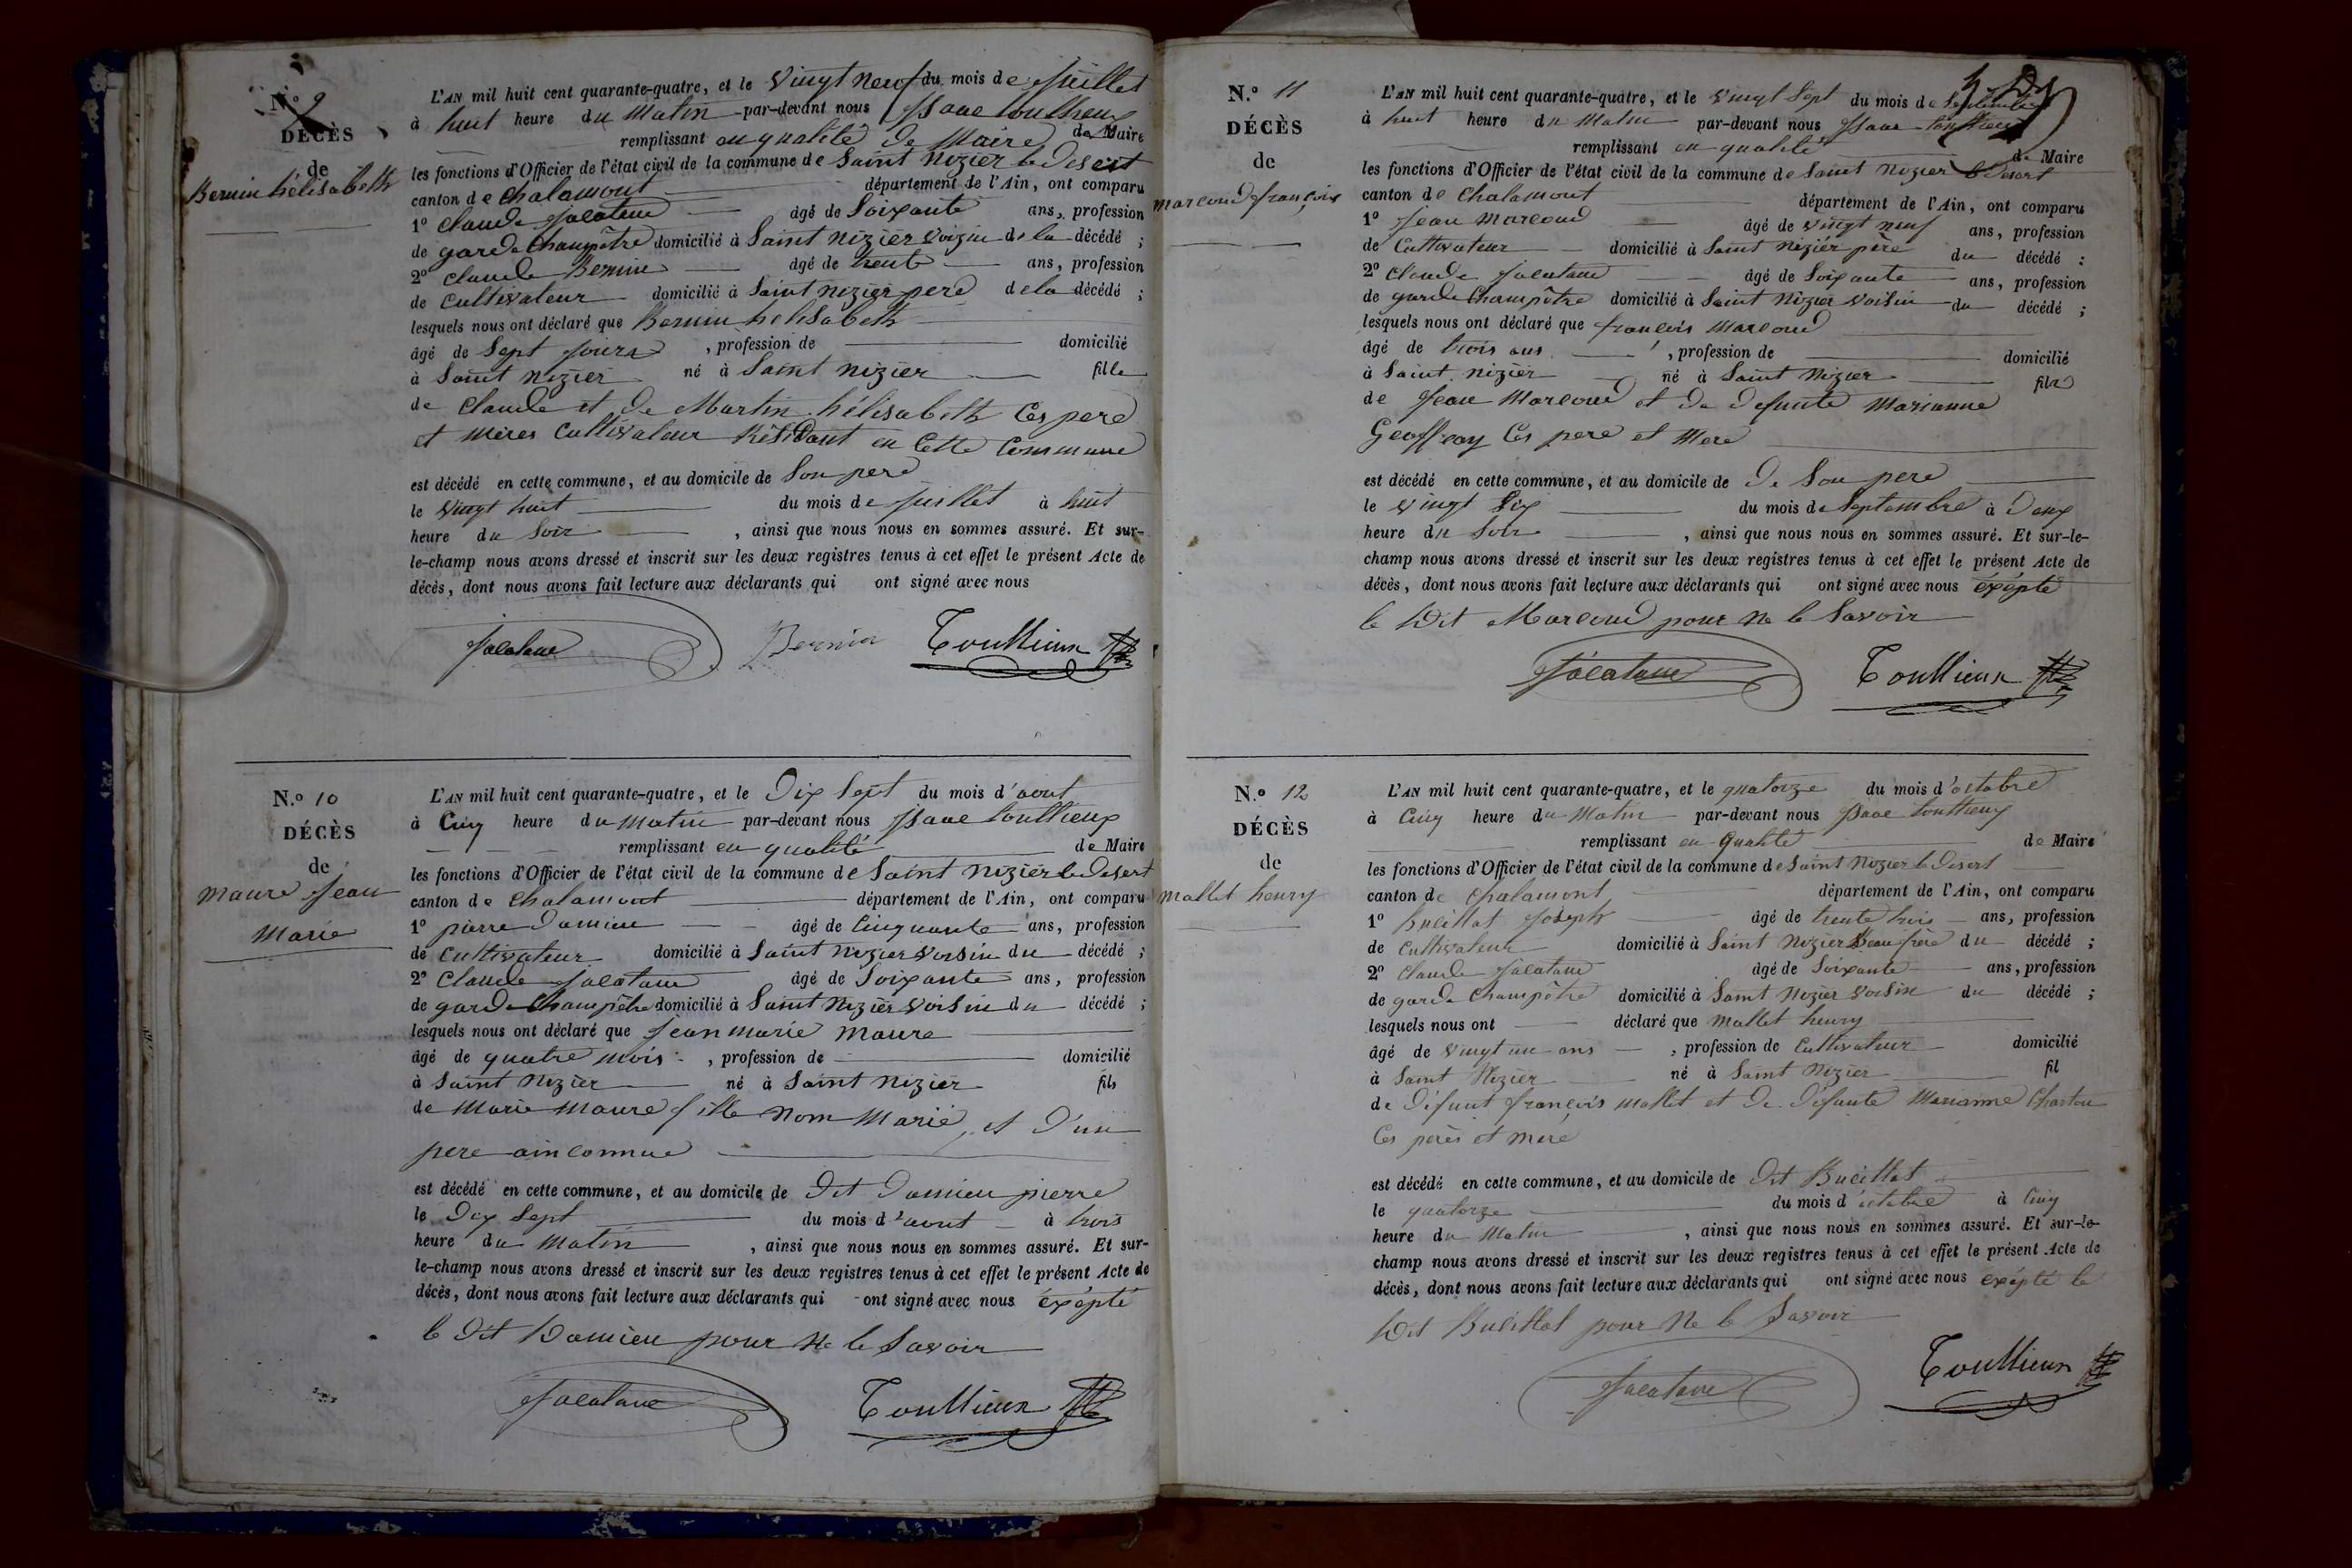 N.o 9
DÉCÈS
de
Bernin hélisabeth
L'AN mil huit cent quarante-quatre, et le vingt neuf du mois de juillet
à huit heure du Matin par-devant nous Isaac touttieux
remplissant en qualité de Maire de Maire
les fonctions d'Officier de l'état civil de la commune de Saint Nizier le Desert
canton de chalamont département de l'Ain, ont comparu
1o Claude Jacatane âgé de Soixante ans, profession
de garde Champêtre domicilié à Saint Nizier voizin de la décédé ;
2o claude Bernin âgé de trente ans, profession
de Cultivateur domicilié à Saint Nizier pere de la décédé ;
lesquels nous ont déclaré que Bernin helisabeth
âgé de Sept jours , profession de domicilié
à Saint Nizier né à Saint Nizier fille
de Claude et de Martin hélisabeth Ces pere
et mères Cultivateur Résidant en Cette Commune
est décédé en cette commune, et au domicile de Son pere
le vingt huit du mois de juillet à huit
heure du Soir , ainsi que nous nous en sommes assuré. Et sur-
le-champ nous avons dressé et inscrit sur les deux registres tenus à cet effet le présent Acte de
décès, dont nous avons fait lecture aux déclarants qui ont signé avec nous
Jacatane Bernin Touttieux
N.o 10
DÉCÈS
de
Maure Jean
Marie
L'AN mil huit cent quarante-quatre, et le Dix Sept du mois d'aout
à Cinq heure du matin par-devant nous Isaac touttieux
remplissant en qualité de Maire
les fonctions d'Officier de l'état civil de la commune de Saint Nizier le Desert
canton de Chalamont département de l'Ain, ont comparu
1o pierre Damien âgé de Cinquante ans, profession
de Cultivateur domicilié à Saint Nizier voisin du décédé ;
2o Claude Jacatane âgé de Soixante ans, profession
de garde Champêtre domicilié à Saint Nizier voisin du décédé ;
lesquels nous ont déclaré que Jean marie maure
âgé de quatre mois , profession de domicilié
à Saint Nizier né à Saint Nizier fils
de Marie Maure fille nom Marié, et d'un
pere ainconnue
est décédé en cette commune, et au domicile de Dit Damien pierre
le Dix Sept du mois d'aout à trois
heure du Matin , ainsi que nous nous en sommes assuré. Et sur-
le-champ nous avons dressé et inscrit sur les deux registres tenus à cet effet le présent Acte de
décès, dont nous avons fait lecture aux déclarants qui ont signé avec nous éxépté
le Dit Damien pour ne le Savoir
Jacatane Touttieux
N.o 11
DÉCÈS
de
marcoud françois
L'AN mil huit cent quarante-quatre, et le vingt Sept du mois de Septembre
à huit heure du Matin par-devant nous Isaac touttieux
remplissant en qualité de Maire
les fonctions d'Officier de l'état civil de la commune de Saint Nizier le Desert
canton de Chalamont département de l'Ain, ont comparu
1o Jean Marcoud âgé de vingt neuf ans, profession
de Cultivateur domicilié à Saint Niziér père du décédé :
2o Claude Jacatane âgé de Soixante ans, profession
de garde Champêtre domicilié à Saint Nizier voisin du décédé ;
lesquels nous ont déclaré que françois Marcoud
âgé de trois ans , profession de domicilié
à Saint Nizier né à Saint Nizier fils
de Jean Marcoud et de defunte Marianne
Geoffray Ces pere et Mere
est décédé en cette commune, et au domicile de de Son pere
le vingt Six du mois de Septembre à Deux
heure du Soir , ainsi que nous nous en sommes assuré. Et sur-le-
champ nous avons dressé et inscrit sur les deux registres tenus à cet effet le présent Acte de
décès, dont nous avons fait lecture aux déclarants qui ont signé avec nous éxépté
le Dit Marcoud pour Ne le Savoir
Jacatane Touttieux
N.o 12
DÉCÈS
de
Mallet henry
L'AN mil huit cent quarante-quatre, et le quatorze du mois d'octobre
à Cinq heure du Matin par-devant nous Isaac touttieux
remplissant en Qualité de Maire
les fonctions d'Officier de l'état civil de la commune de Saint Nizier le Desert
canton de Chalamont département de l'Ain, ont comparu
1o Bueillat Joseph âgé de trente trois ans, profession
de Cultivateur domicilié à Saint Nizier Beau frère du décédé ;
2o Claude Jacatane âgé de Soixante ans, profession
de garde Champêtre domicilié à Saint Nizier voisin du décédé ;
lesquels nous ont déclaré que Mallet henry
âgé de vingt un ans , profession de Cultivateur domicilié
à Saint Nizier né à Saint Nizier fil
de Défunt françois mallet et de Défunte Marianne Charton
Ces perès et mere
est décédé en cette commune, et au domicile de Dit Bueillat
le quatorze du mois d'octobre à Cinq
heure du Matin , ainsi que nous nous en sommes assuré. Et sur-le-
champ nous avons dressé et inscrit sur les deux registres tenus à cet effet le présent Acte de
décès, dont nous avons fait lecture aux déclarants qui ont signé avec nous éxépté le
Dit Bueillat pour Ne le Savoir
Jacatane Touttieux